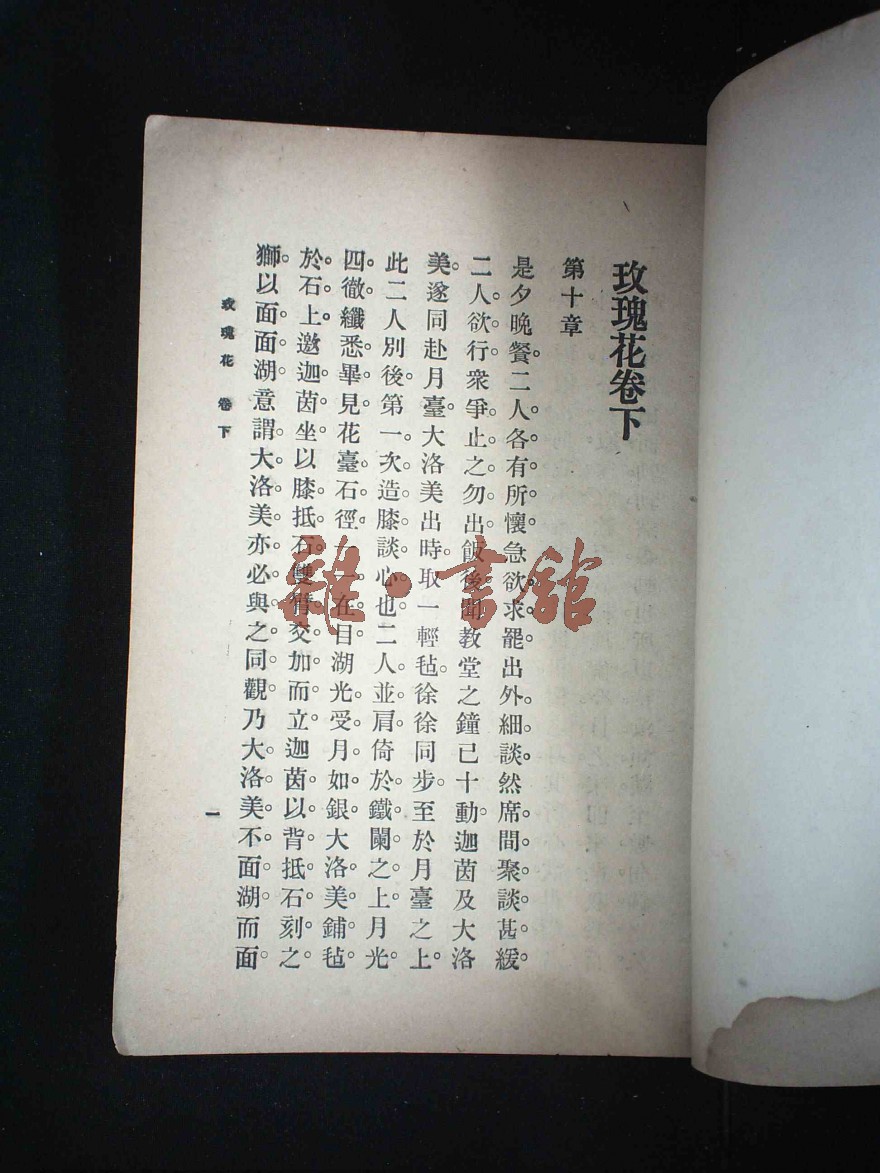 玫瑰花卷下
第十章
是夕晚餐。二人各有所懷。急欲求罷出外細談。然席間聚談甚緩。
二人欲行。衆爭止之勿出。飯後聞教堂之鐘已十動。迦茵及大洛
美。遂同赴月臺。大洛美出時。取一輕毡。徐徐同步。至於月臺之上。
此二人別後第一次造膝談心也。二人並肩倚於鐵闌之上。月光
四徹。纖悉畢見。花臺石徑。一一在目。湖光受月如銀。大洛美鋪毡
於石上。邀迦茵坐。以膝抵石。雙臂交加而立。迦茵以背抵石刻之
獅。以面面湖。意謂大洛美亦必與之同觀。乃大洛美不面湖而面
玫瑰花 卷下
一
雜·書館